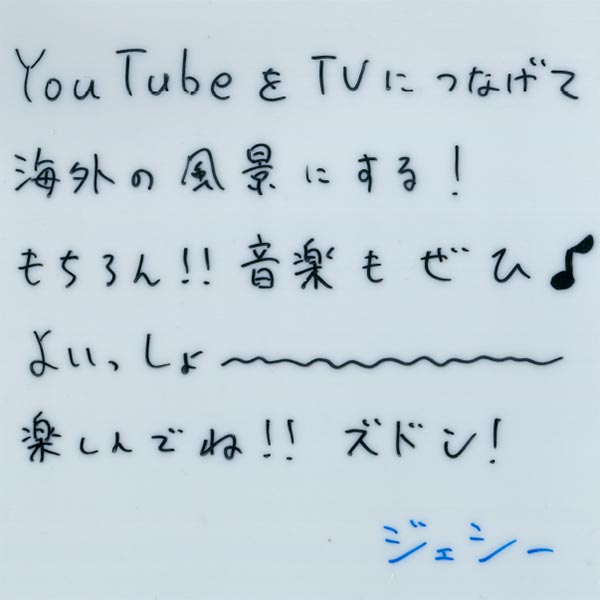 YouTubeをTVにつなげて
海外の風景にする!
もちろん!!音楽もぜひ♪
よいっしょ〜〜〜〜〜〜〜〜
楽しんでね!! ズドン!
ジェシー